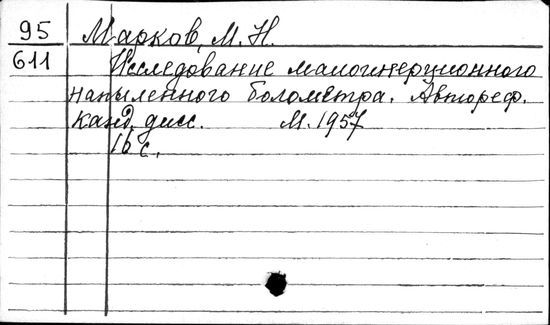 95 Марков, М. Н.
611 Исследование малоинерционного
напыленного болометра. Автореф.
канд. дисс. М. 1957
16 с.